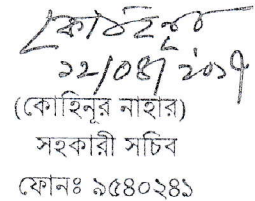 কোহিনূর
১২/০৪/২০১৭
(কোহিনূর নাহার)
সহকারী সচিব
ফোনঃ ৯৫৪০২৪১